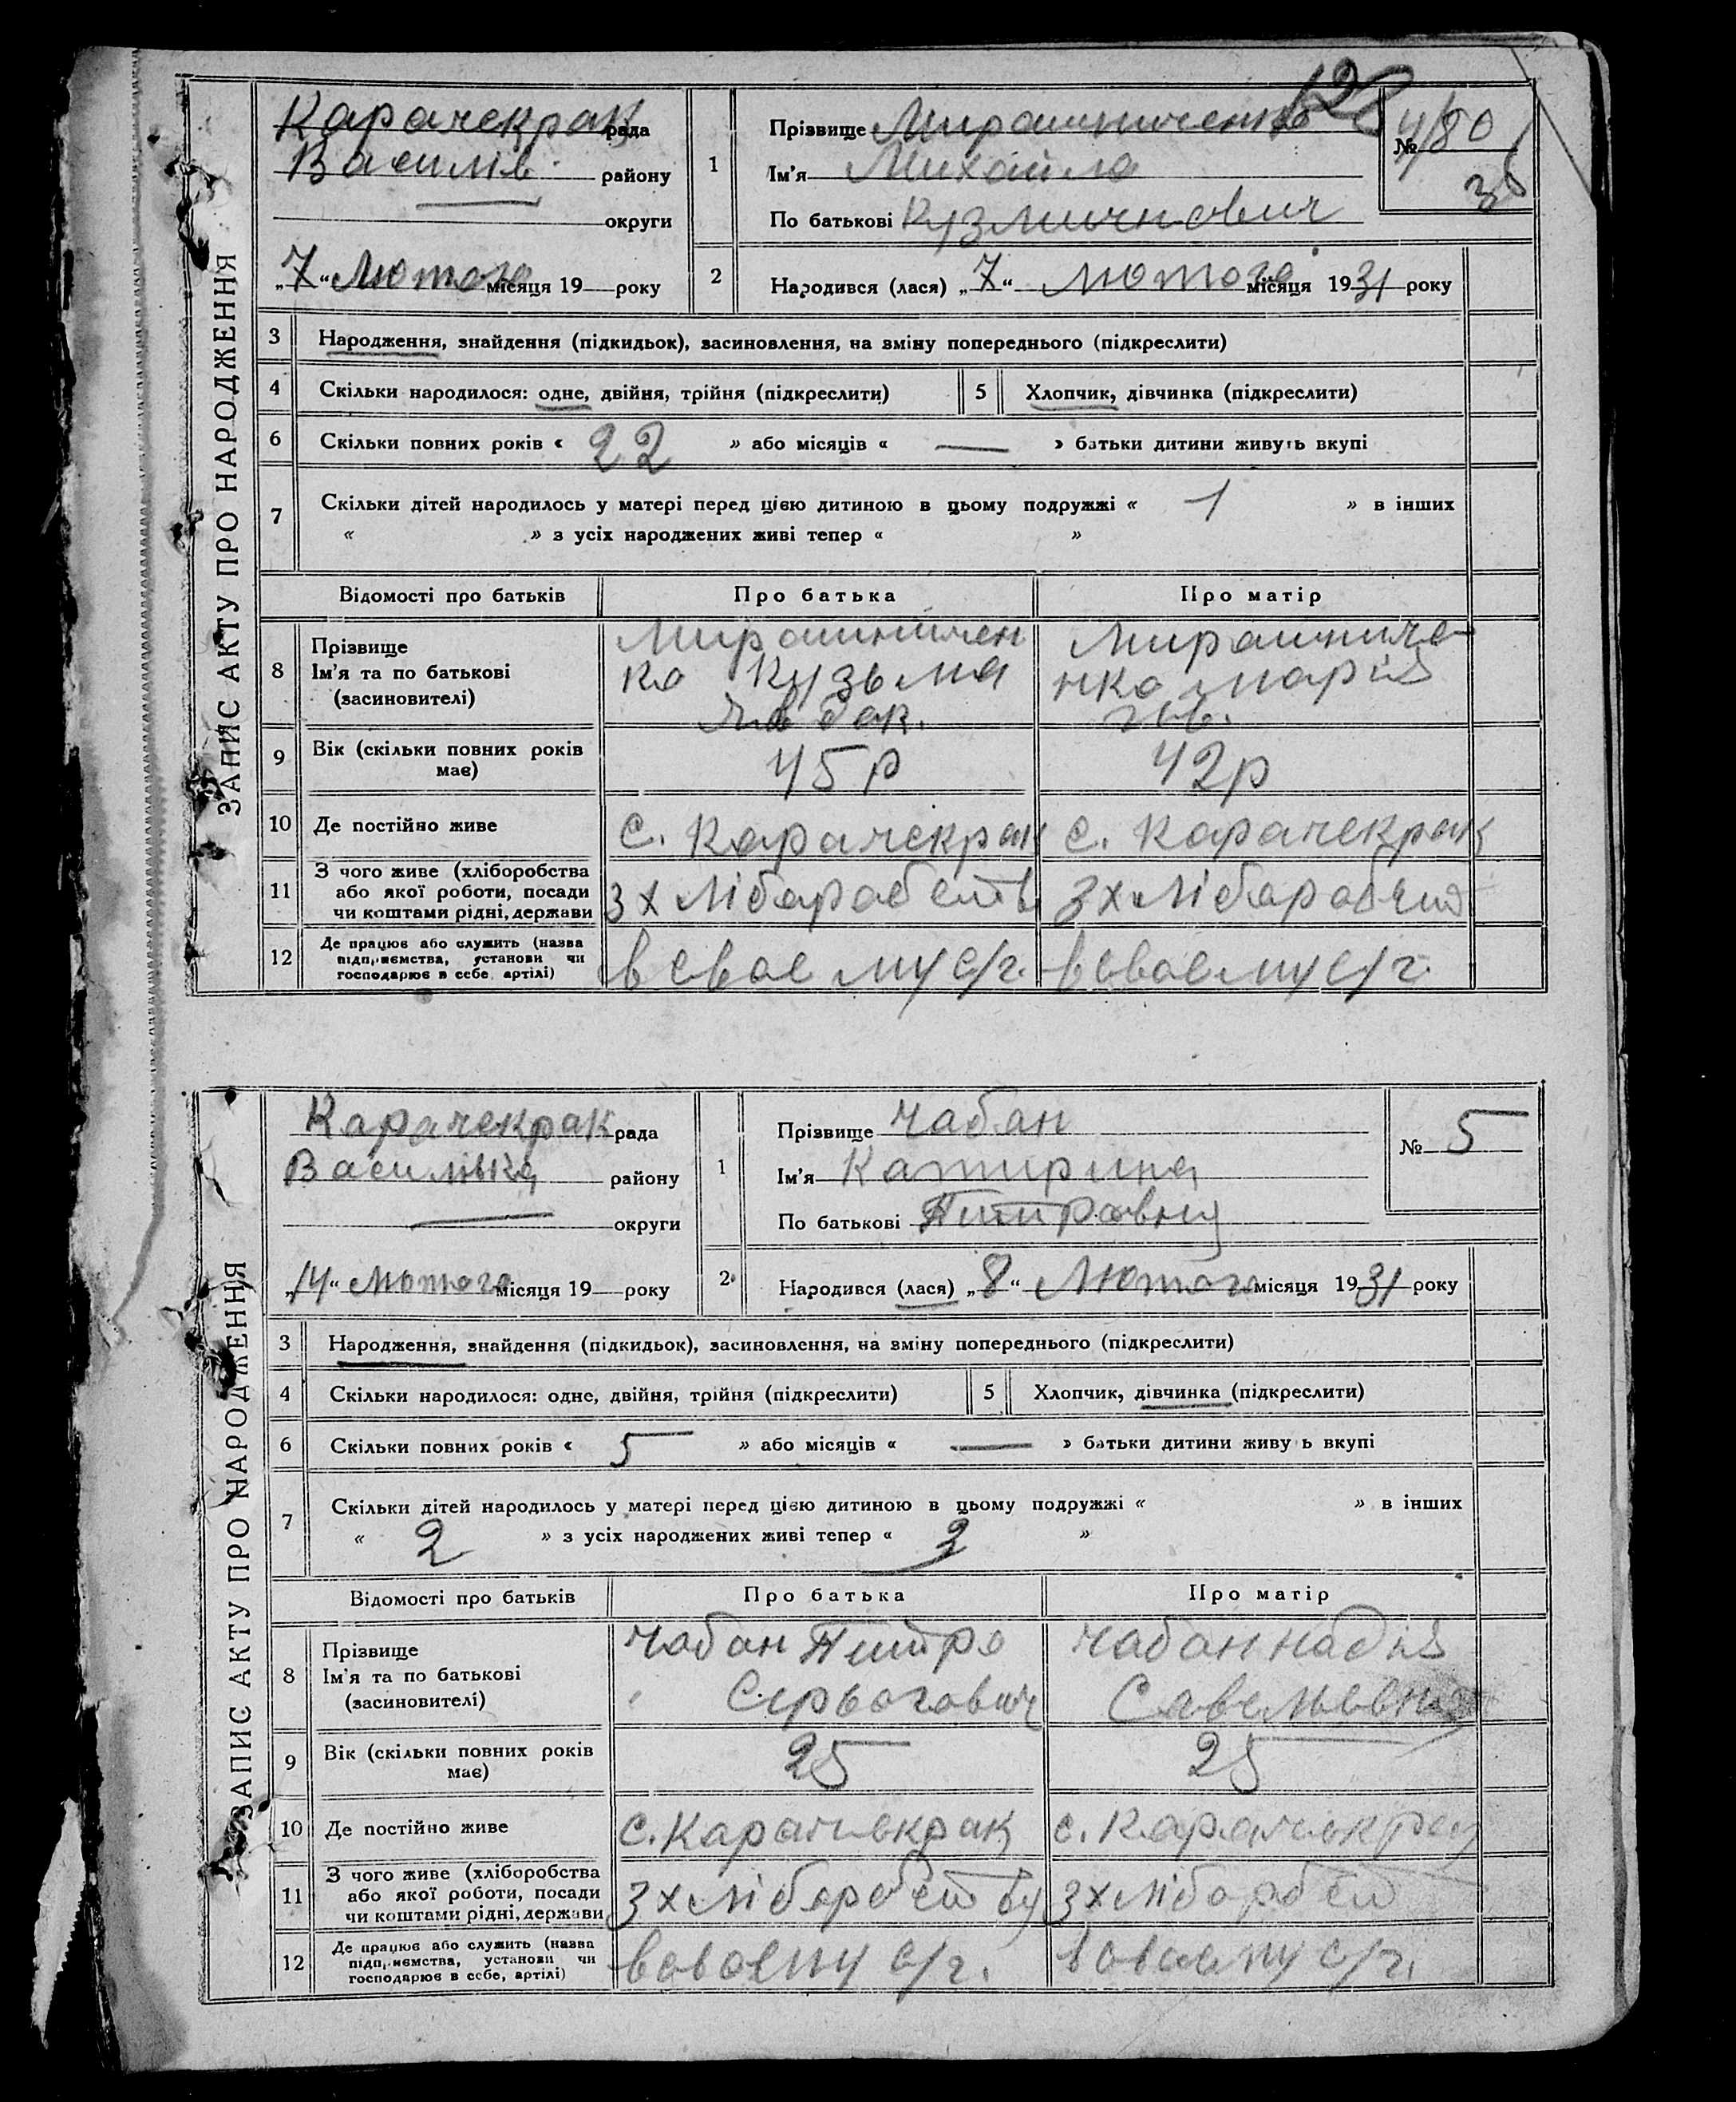 ЗАПИС АКТУ ПРО НАРОДЖЕННЯ
Карачекрак рада
Василів. району
округи
„7“ Лютого місяця 19 року
1
Прізвище Мирошниченко
Ім'я Михайло
По батькові Кузмичнович
№ 4/80
2
Народився (лася) „7“ лютого місяця 1931 року
3 Народження, знайдення (підкидьок), засиновлення, на зміну попереднього (підкреслити)
4 Скільки народилося: одне, двійня, трійня (підкреслити) 5 Хлопчик, дівчинка (підкреслити)
6 Скільки повних років « 22 » або місяців « — » батьки дитини живуть вкупі
7 Скільки дітей народилось у матері перед цією дитиною в цьому подружжі « 1 » в інших
« » з усіх народжених живі тепер « »
Відомості про батьків Про батька Про матір
8 Прізвище
Ім'я та по батькові
(засиновителі)
Мирошничен
ко Кузьма
Мирошниче
нко марія
9 Вік (скільки повних років
має)
45 р 42р
10 Де постійно живе с. Карачекрак с. Карачекрак
11 З чого живе (хліборобства
або якої роботи, посади
чи коштами рідні, держави
12 Де працює або служить (назва
підприємства, установи чи
господарює в себе, артілі)
в своему с/г. в своему с/г.
ЗАПИС АКТУ ПРО НАРОДЖЕННЯ
Карачекрак рада
Василівка району
округи
„14“ Лютого місяця 19 року
1
Прізвище Чабан
Ім'я Катирина
По батькові Питровна
№ 5
2
Народився (лася) „8“ Лютого місяця 1931 року
3 Народження, знайдення (підкидьок), засиновлення, на зміну попереднього (підкреслити)
4 Скільки народилося: одне, двійня, трійня (підкреслити) 5 Хлопчик, дівчинка (підкреслити)
6 Скільки повних років « 5 » або місяців « — » батьки дитини живу ь вкупі
7 Скільки дітей народилось у матері перед цією дитиною в цьому подружжі « » в інших
« 2 » з усіх народжених живі тепер « 2 »
Відомості про батьків Про батька Про матір
8 Прізвище
Ім'я та по батькові
(засиновителі)
Чабан Питро
Сирьогович
Чабан надія
Савельевна
9 Вік (скільки повних років
має)
25 25
10 Де постійно живе с. Карачекрак с. Карачекрак
11 З чого живе (хліборобства
або якої роботи, посади
чи коштами рідні, держави
12 Де працює або служить (назва
підприємства, установи чи
господарює в себе, артілі)
с/г. с/г.